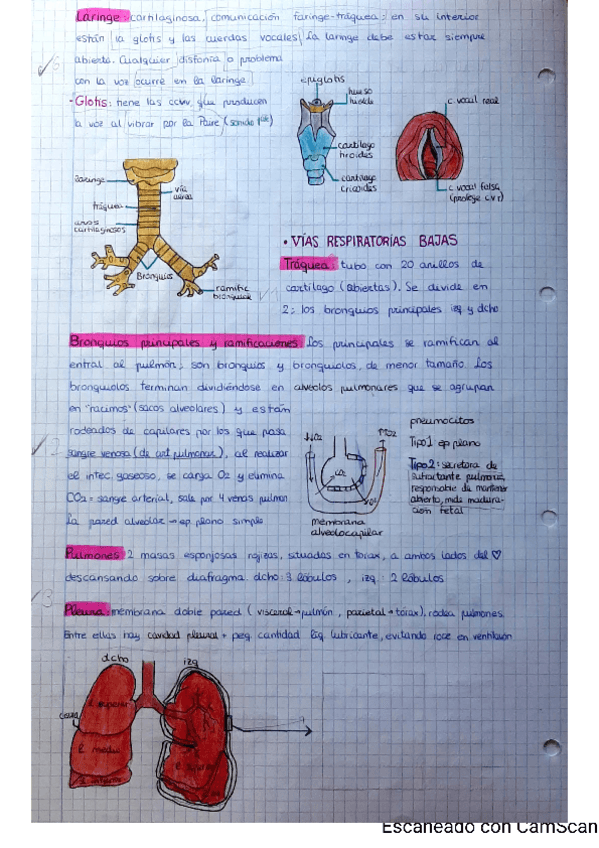 Laringe: cartilaginosa, comunicación faringe-tráquea: en su interior
están la glotis y las cuerdas vocales. La laringe debe estar siempre
abierta. Cualquier disfonía o problema
con la voz ocurre en la laringe
- Glotis: tiene las ccvv que producen
la voz al vibrar por la
epiglotis
hueso
hioide
cartílago
tiroides
cartílago
cricoides
c. vocal real
c. vocal falsa
(protege c.v.r)
laringe
tráquea
anos
cartilaginosos
vía
aérea
Bronquios
ramific
bronquios
• VÍAS RESPIRATORIAS BAJAS
Tráquea: tubo con 20 anillos de
cartílago (abiertas). Se divide en
2: los bronquios principales izq y dcho
Bronquios principales y ramificaciones: Los principales se ramifican al
entral al pulmón, son bronquios y bronquiolos, de menor tamaño. Los
bronquiolos terminan dividiéndose en alveolos pulmonares que se agrupan
en "racimos" (sacos alveolares) y están
rodeados de capilares por los que pasa
sangre venosa (de art pulmonar), al realizar
el interc gaseoso, se carga O2 y elimina
CO2 = sangre arterial, sale por 4 venas pulmon
La pared alveolar → ep plano simple
membrana
alveolocapilar
pneumocitos
Tipo 1 ep plano
Tipo 2: secretora de
surfactante pulmona,
responsable de mantener
abierto, más madura-
ción fetal
Pulmones: 2 masas esponjosas rojizas, situadas en tórax, a ambos lados del ♡
descansando sobre diafragma. dcho: 3 lóbulos, izq: 2 lóbulos
Pleura: membrana doble pared (visceral → pulmón, parietal → tórax), rodea pulmones.
Entre ellas hay cavidad pleural + peq cantidad líq lubricante, evitando roce en ventilación
dcho
izq
l. superior
l. medio
l. inferior
Escaneado con CamScan